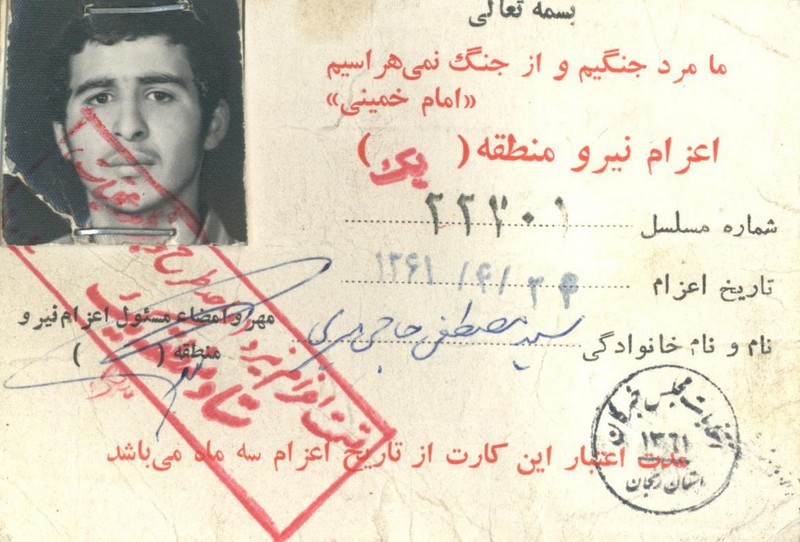 بسمه تعالی
ما مرد جنگیم و از جنگ نمی‌هراسیم
«امام خمینی»
اعزام نیرو منطقه ( یک )
شماره مسلسل ۲۲۳۰۱
تاریخ اعزام ۱۳۶۱/۶/۲۴
نام و نام خانوادگی سید مصطفی حاجی میری
مهر و امضاء مسئول اعزام نیرو
منطقه ( )
مدت اعتبار این کارت از تاریخ اعزام سه ماه می‌باشد
انتخابات مجلس خبرگان
۱۳۶۱
استان زنجان